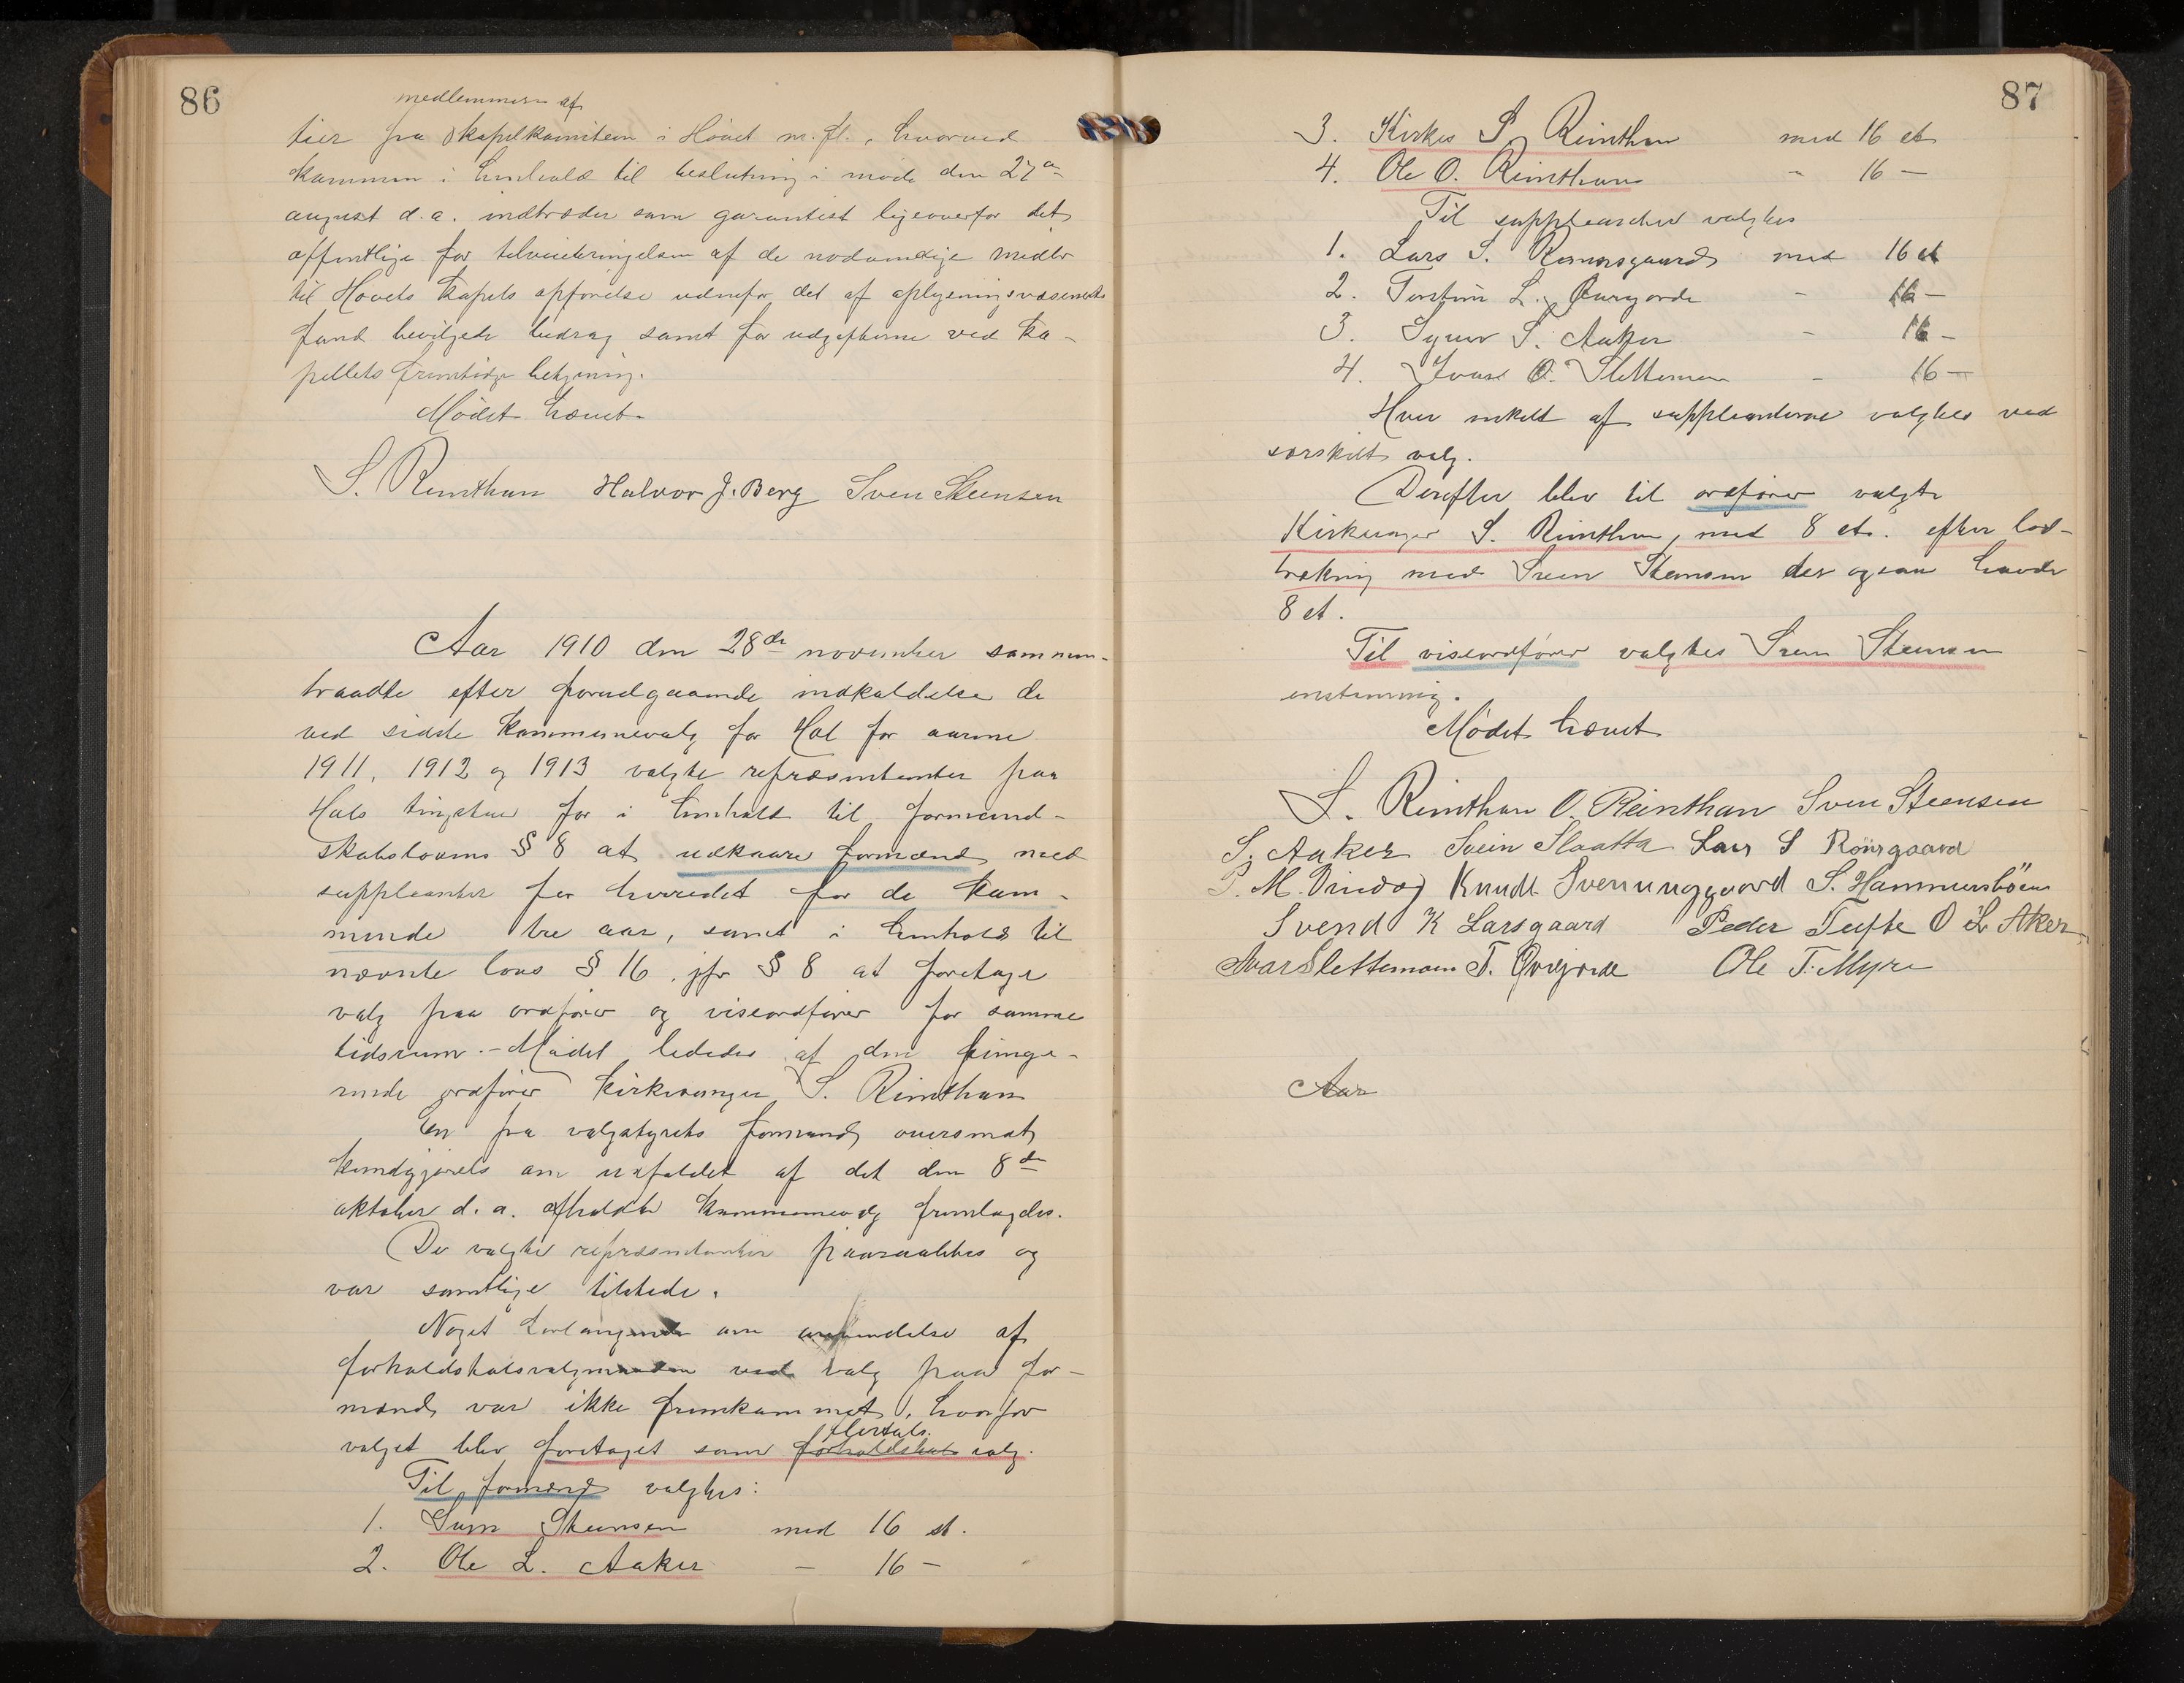 86
medlemmerne af
tier fra kapelkomiteen i Hovet m. fl., hvorved
kommunen i henhold til beslutning i møde den 27de
august d.a. indtræder som garantist ligeoverfor det
offentlige for tilveiebringelsen af de nødvendige midler
til Hovets kapels opførelse udenfor det af oplysningsvæsenets
fond bevilgede bidrag samt for udgifterne ved ka-
pellets fremtidige betjening.
Mødet hævet.
S. Reinthun Halvor J. Berg Sven Steensen
Aar 1910 den 28de november sammen-
traadte efter forudgaaende indkaldelse de
ved sidste kommunevalg for Hol for aarene
1911, 1912 og 1913 valgte repræsentanter paa
Hols tingstue for i henhold til formand-
skabslovens § 8 at udkaare formænd med
suppleanter for herredet for de kom-
mende tre aar, samt i henhold til
nævnte lovs § 16, jfr § 8 at foretage
valg paa ordfører og viseordfører for samme
tidsrum. - Mødet lededes af den funge-
rende ordfører kirkesanger S. Reinthun
En fra valgstyrets formand oversendt
kundgjørelse om udfaldet af det den 8de
oktober d. a. afholdte kommunevalg fremlagdes.
De valgte repræsentanter paaraabtes og
var samtlige tilstede.
Noget forlangende om anvendelse af
forholdstalsvalgmaaden ved valg paa for-
mænd var ikke fremkommet, hvorfor
flertals
valget blev foretaget som forholdstals valg.
Til formænd valgtes:
1. Sven Steensen med 16 st.
2. Ole L. Aaker - 16 -
87
3. Kirkes S. Reinthun med 16 st
4. Ole O. Reinthun - 16 -
Til suppleanter valgtes
1. Lars S. Rønnsgaard med 16 st
2. Torstein L. - 16 -
3. S. Aaker - 16 -
4. Ivar O. Slettemoen - 16 -
Hver enkelt af suppleanterne valgtes ved
særskilt valg.
Derefter blev til ordfører valgte
Kirkesanger S. Reinthun, med 8 st. efter lod-
trækning med Sven Steensen der ogsaa havde
8 st.
Til viseordfører valgtes Sven Steensen
enstemmig.
Mødet hævet
S. Reinthun O. Reinthun Sven Steensen
S. Aaker Svein Slaatta Lars S Rönsgaard
P. M. Knudt Svenunggaard S. Hammersböen
Svend K Larsgaard Peder Tufte O L Aker
Ivar Slettemoen T. Ole T. Myre
Aar